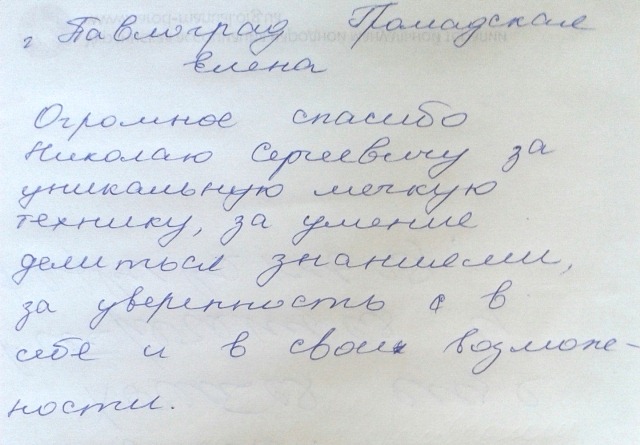 г Павлоград Громадская
Елена
Огромное спасибо
Николаю Сергеевичу за
уникальную мягкую
технику, за умение
делиться знаниями,
за уверенность в
себе и в своих возможно-
ности.